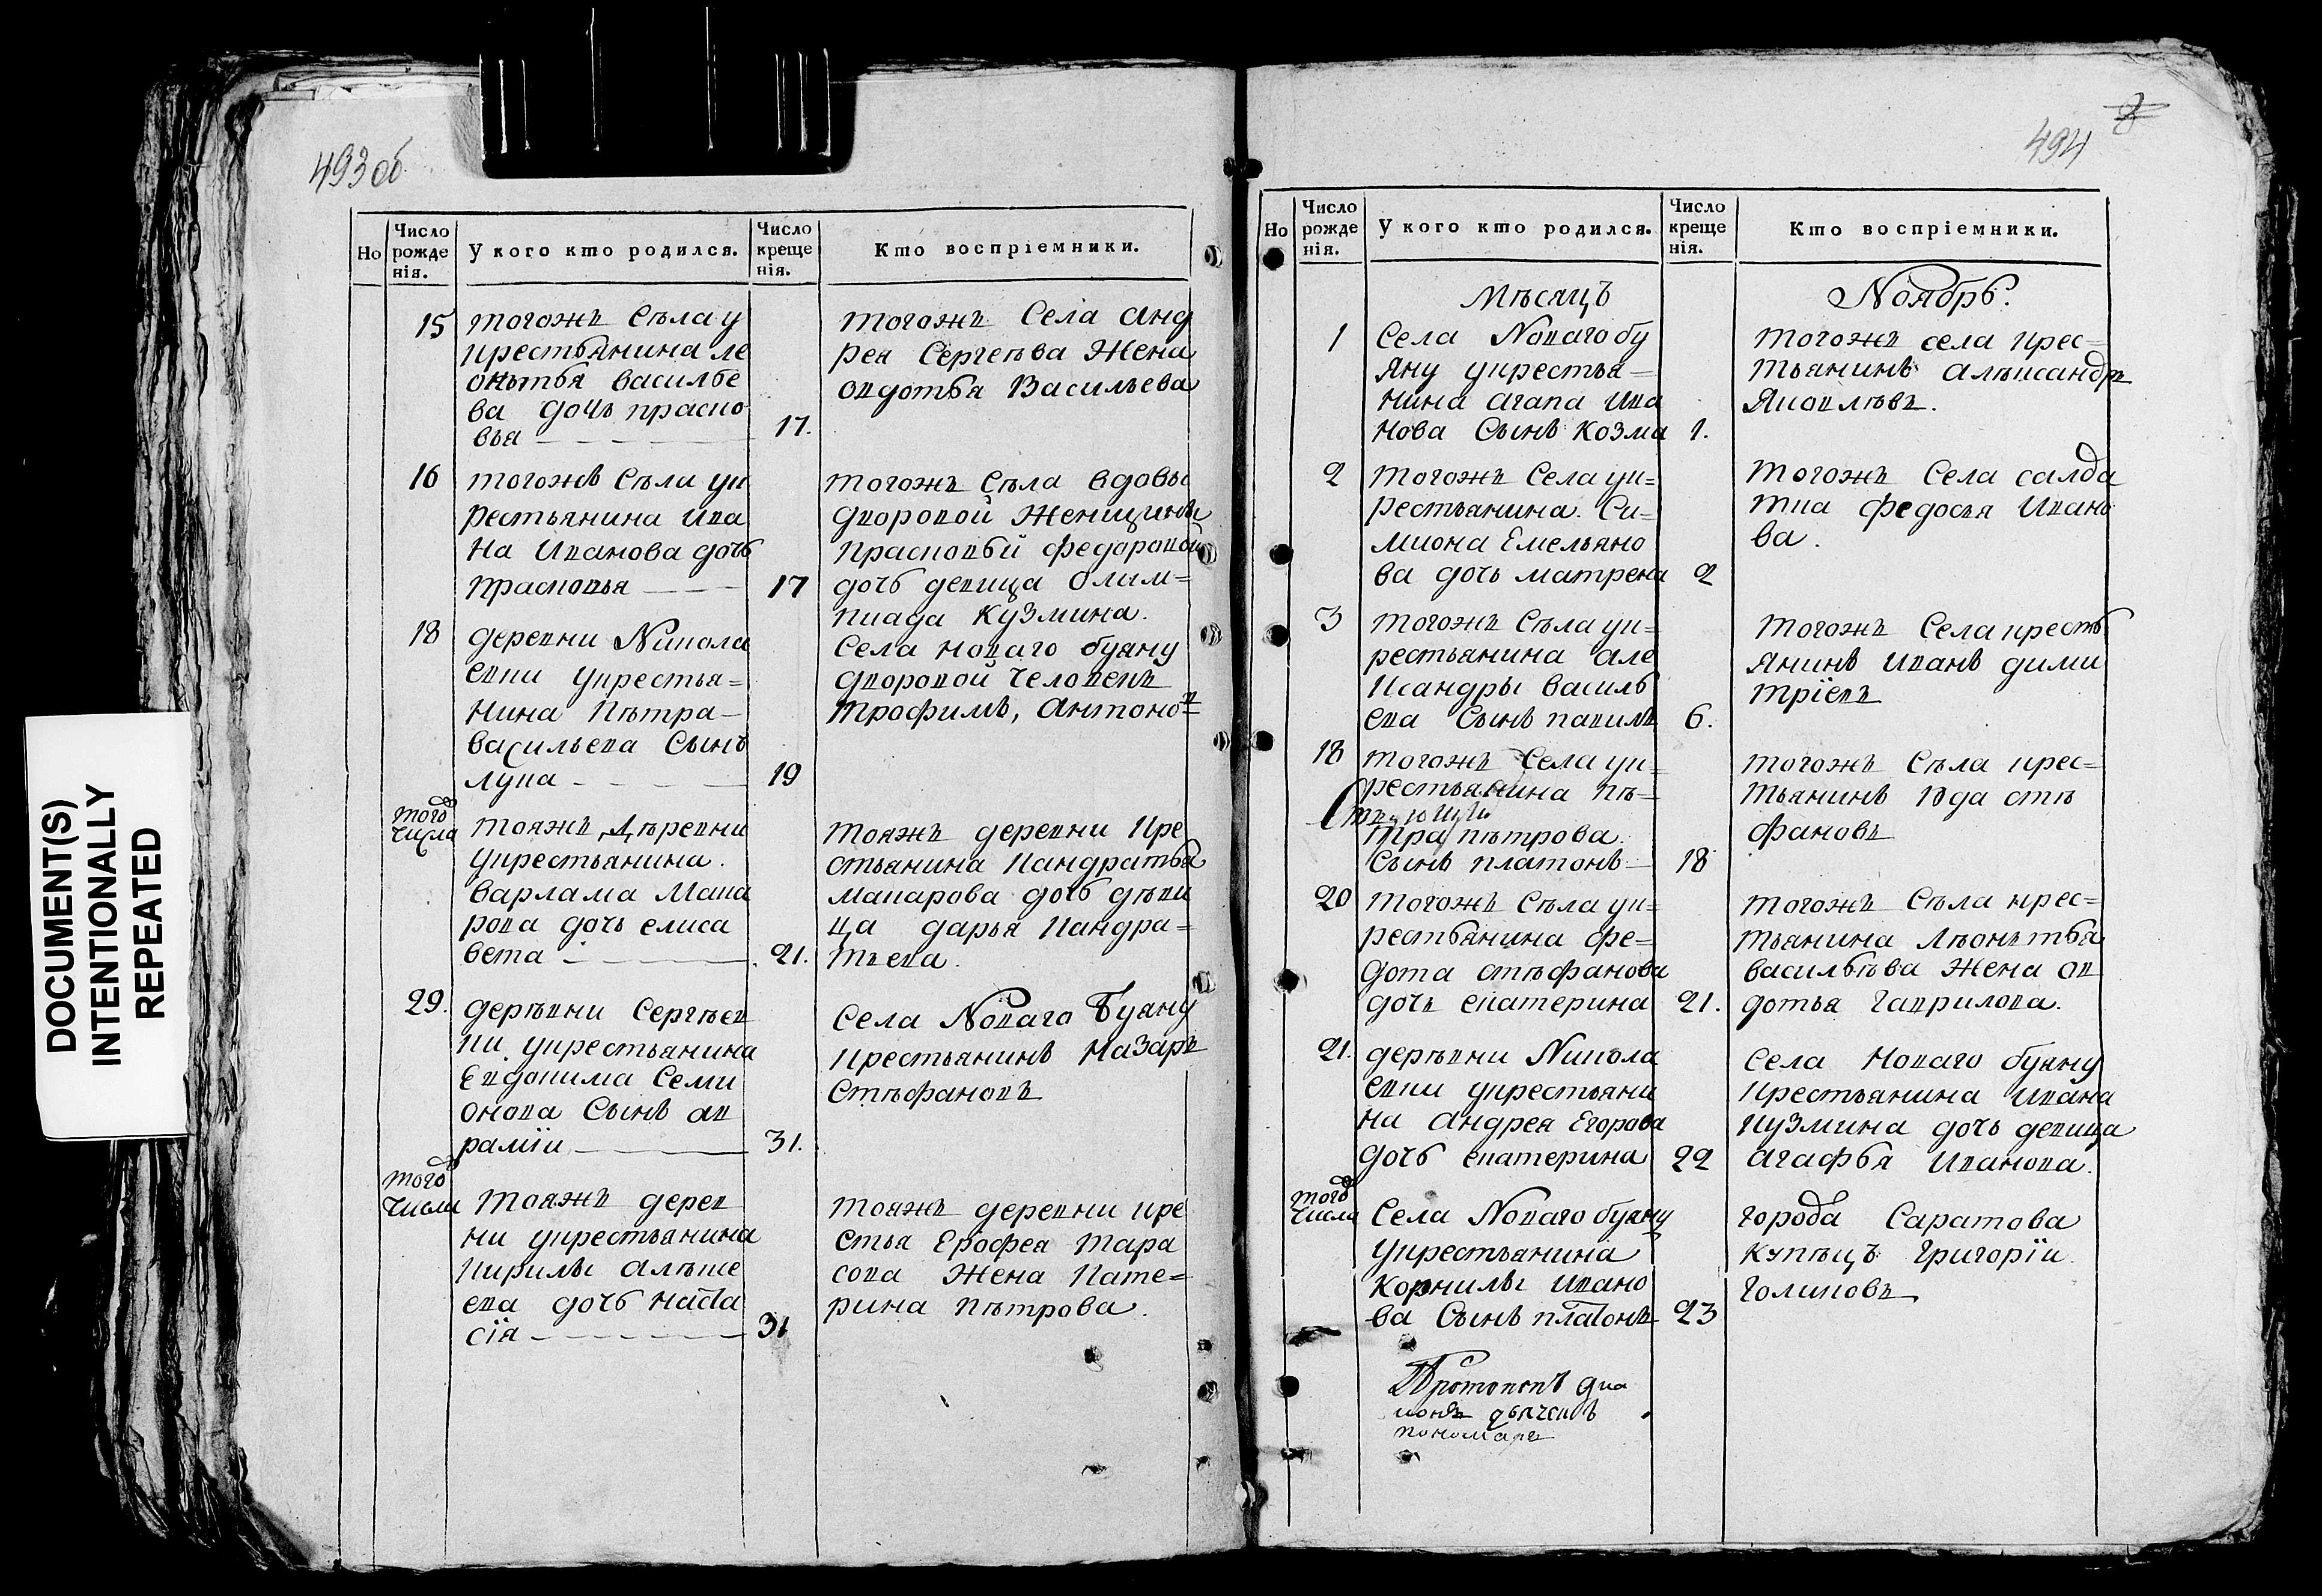 493 об
Но
Число рожденія.
У кого кто родился.
Число крещенія.
Кто воспріемники.
15
тогожъ Сѣла у
крестьянина ле
онътья василье
ва дочь праско
вья
17.
тогожъ Села анд
рея Сергеѣва Жена
овдотья Васильева
16
тогожъ Сѣла ук
рестьянина ива
на Иванова дочь
прасковья
17
тогожъ Сѣла вдовы
дворовой Женщины
прасковьи федоровой
дочь девица олим=
пиада Кузмина.
18
деревни Никола
евки укрестья=
нина Пѣтра
васильева Сынъ
лупа
19
Села новаго буяну
дворовой Человекъ
трофимъ, антоновъ
того
числа
тояжъ Дѣревни
укрестьянина.
варлама Мака
рова дочь елиса
вета
21.
тояжъ деревни кре
стьянина Кандратья
макарова дочь дѣви
ца дарья Кандра=
тьева.
29.
дерѣвни Сергѣев
ки укрестьянина
Евдокима Семи
онова Сынъ ав
рамїи
31.
Села Новаго Буяну
крестьянинъ Назаръ
Стѣфановъ
того
числа
Тояжъ дерев
ни укрестьянина
Кирилы алѣше
ева дочь наста
сїя
31
тояжъ деревни кре
стья Ерофея тара
сова Жена Кате=
рина пѣтрова.
494
8
Но
Число рожденія.
У кого кто родился.
Число крещенія.
Кто воспріемники.
Мѣсяцъ
Ноябрь.
1
Села Новаго бу
яну укрестья=
нина агапа ива
нова Сынъ козма
1.
тогожъ села крес=
тьянинъ алѣксандръ
Яковлѣвъ.
2
тогожъ Села ук=
рестьянина. Си=
миона Емельяно
ва дочь матрена
2
тогожъ Села салда
тка федосья Ивано
ва.
3
тогожъ Сѣла ук=
рестьянина але
ксандры василь
ева Сынъ павилъ
6.
тогожъ Села кресть
янинъ иванъ дими
трїевъ
18
тогожъ Села ук=
рестьянина пѣ=
тра пѣтрова.
Сынъ платонъ
18
тогожъ Сѣла крес=
тьянинъ Юда стѣ
фановъ
20
тогожъ Сѣла ук=
рестьянина фе=
дота стѣфанова
дочь екатерина
21.
тогожъ Сѣла крес=
тьянина Лѣонтья
васильѣва Жена ов
дотья гаврилова.
21.
дерѣвни Никола
евки укрестьяни
на андрея Егорова
дочь екатерина
22
Села Новаго буяну
крестьянина ивана
кузмина дочь девица
агафья Иванова.
того
числа
Села Новаго буяну
укрестьянина
корнилы ивано
ва Сынъ платонъ
23
города Саратова
купѣцъ григорїи
голиковъ
Протопопъ диа
конъ дьячекъ
пономарь
DOCUMENT(S)
INTENTIONALLY
REPEATED